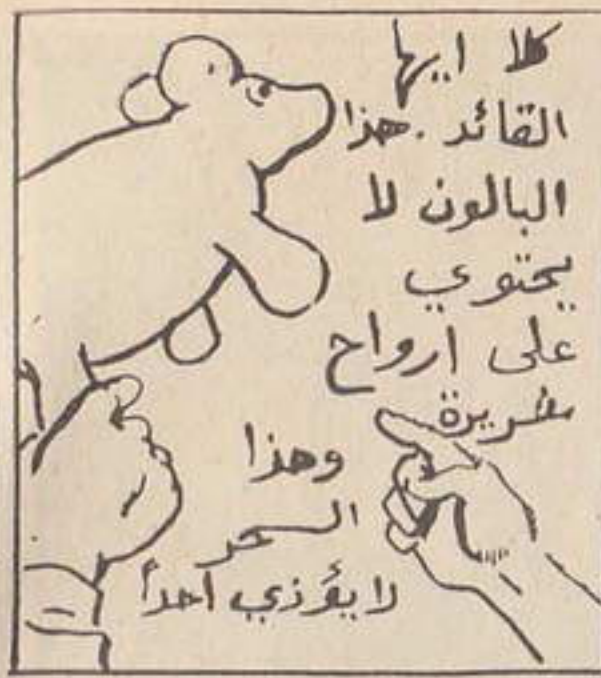 كلا ايها
القائد . هذا
البالون لا
يحتوي
على ارواح
شريرة
وهذا
السحر
لا يؤذي احداً